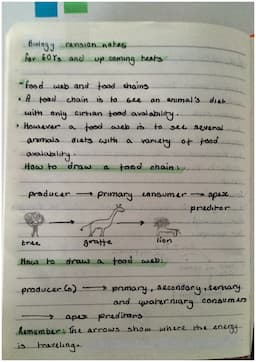 Biology revision notes
for EOYs and up coming tests
- Food web and food chains
• A food chain is to see an animal's diet
with only cirtian food availability.
• However a food web is to see several
animals diets with a variety of food
availability.
How to draw a food chain:
producer → primary consumer → apex
preditor
tree giraffe lion
How to draw a food web:
producer(s) → primary, secondary, tertiary
and quaternary consumers
→ apex preditors
Remember: The arrows show where the energy
is traveling.